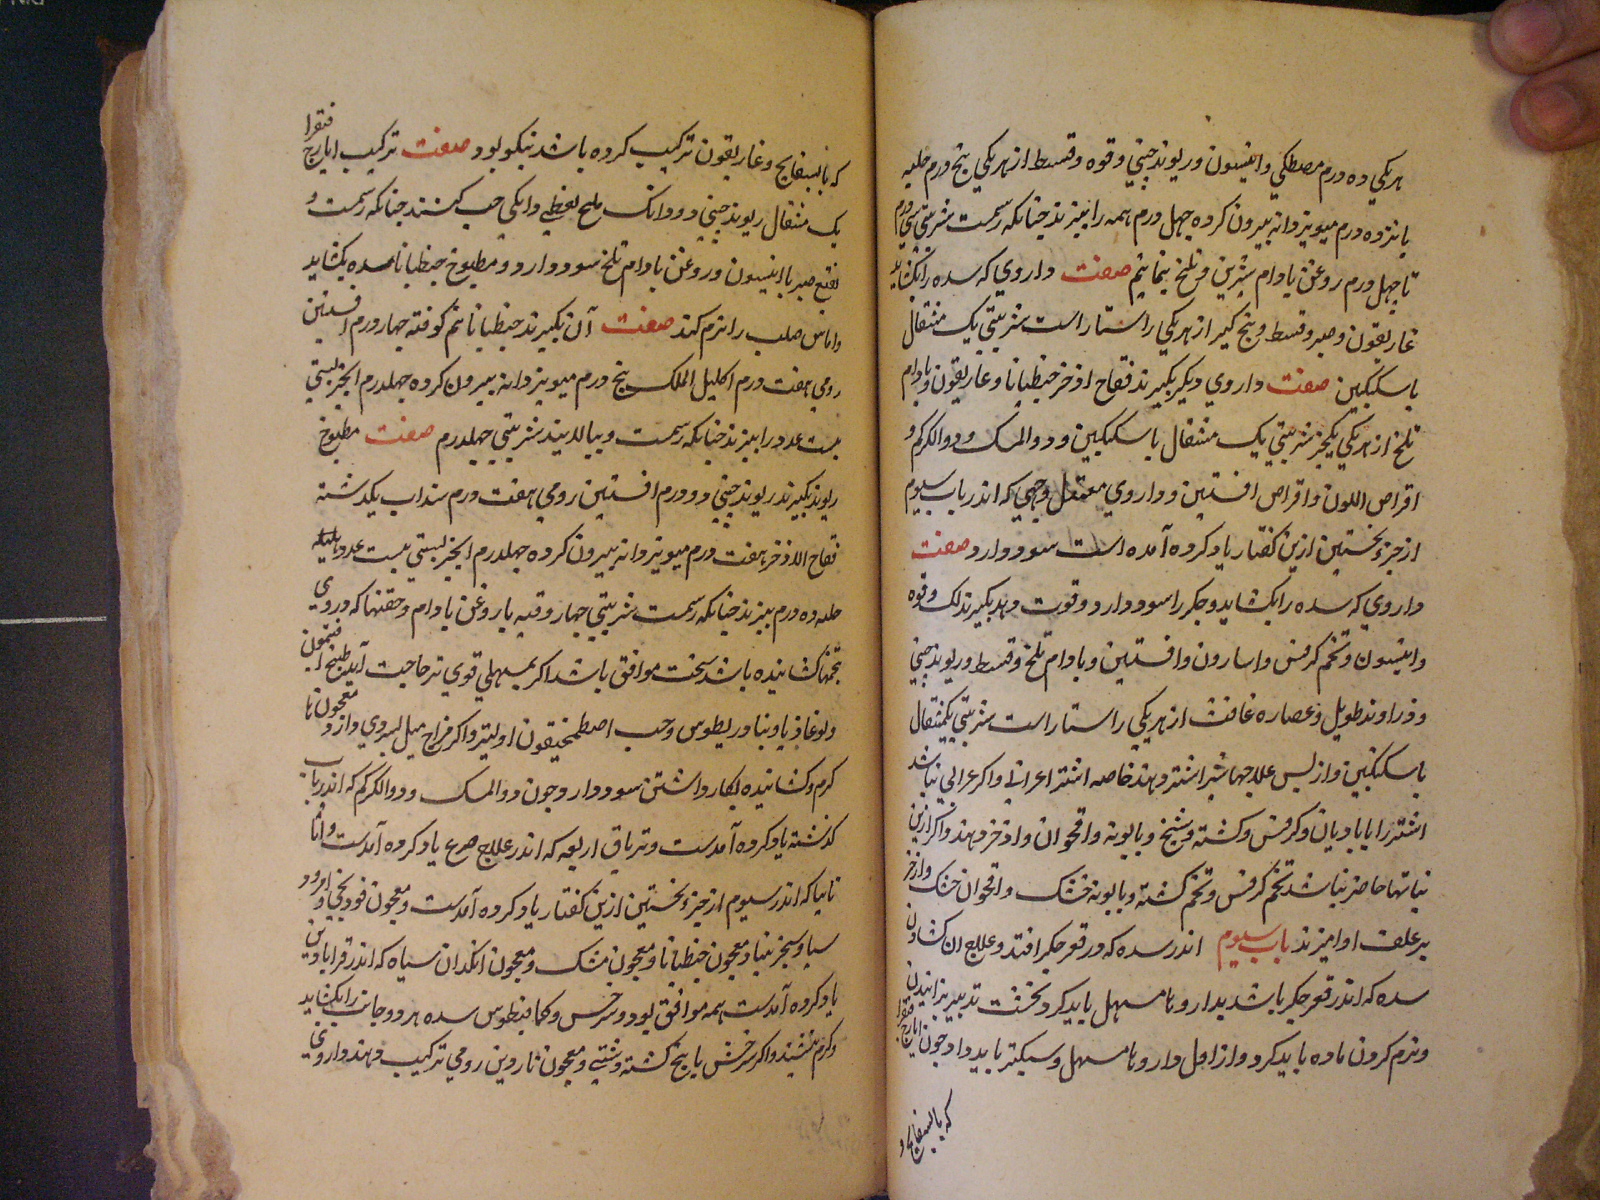 هریکی ده درم مصطکی و انیسون و ریوند چینی و فوه و قسط از هریکی پنج درم حلبه
پانزده درم میویز دانه بیرون کرده چهل درم همه را بپزند چنانکه رسمست شربتی سی درم
تا چهل درم روغن بادام شیرین و تلخ صفت داروی که سده را بکشاید
غاریقون و صبر و قسط و بیخ کبر از هریکی راستا راست شربتی یک مثقال
با سکنکبین صفت داروی دیکر بکیرند فقاح اذخر جنطیانا و غاریقون و بادام
تلخ از هریکی یکجز شربتی یک مثقال با سکنکبین و دوالمسک و دوالکرکم و
اقراص اللون و اقراص افسنتین و داروی که اندر باب سیوم
از جزء نخستین ازین کفتار یاد کرده آمده است سود دارد صفت
داروی که سده را بکشاید و جکر را سود دارد و قوت دهد بکیرند لک و فوه
و انیسون و تخم کرفس و اسارون و افسنتین و بادام تلخ و قسط و ریوند چینی
و زراوند طویل و عصاره غافث از هریکی راستا راست شربتی یکمثقال
با سکنکبین و از پس علاجها شیر اشتر دهند خاصه اشتر اعرابی و اکر اعرابی نباشد
اشتر را بادیان و کرفس و کشنه و شیح و بابونه و اقحوان و اذخر دهند و اکر ازین
نباتها حاضر نباشد تخم کرفس و تخم کشنه و بابونه خشک و اقحوان خشک و اذخر
بر علف او امیزند باب سیوم اندر سده که در قعر جکر افتد و علاج آن کشادن
سده که اندر قعر جکر باشد بداروها مسهل باید کرد و نخست تدبیر پزانیدن
و نرم کردن ماده باید کرد و از اول داروها مسهل و سبکتر باید داد چون ایارج فیقرا
که با بسفایج و
که با بسفایج و غاریقون ترکیب کرده باشد نیکو بود صفت ترکیب ایارج فیقرا
یک مثقال ریوند چینی دو دانک ملح نفطی دانکی حب کنند چنانکه رسمست و
نقیع صبر با انیسون و روغن بادام تلخ سود دارد و مطبوخ جنطیانا سده بکشاید
و اماس صلب را نرم کند صفت آن بکیرند جنطیانا نیم کوفته چهار درم افسنتین
رومی هفت درم اکلیل الملک پنج درم میویز دانه بیرون کرده چهلدرم انجیر بستی
بیست عدد را بپزند چنانکه رسمست و بپالایند شربتی چهلدرم صفت مطبوخ
ریوند بکیرند ریوند چینی دو درم افسنتین رومی هفت درم سنداب یکدسته
فقاح الاذخر هفت درم میویز دانه بیرون کرده چهلدرم انجیر بستی بیست عدد
حلبه ده درم بپزند چنانکه رسمست شربتی چهار وقیه با روغن بادام و حقنها که در وی
تخمها کشاینده باشد سخت موافق باشد اکر بمسهلی قوی تر حاجت آید طبیخ افتیمون
و لوغاذیا و تیادریطوس و حب اصطمخیقون اولیتر و اکر مزاج میل بسردی دارد معجون ها
کرم و کشاینده بکار داشتن سود دارد چون دوالمسک و دوالکرکم که اندر باب
کذشته یاد کرده آمدست و تریاق اربعه که اندر علاج صرع یاد کرده آمدست و اثا
ناسیا که اندر سیوم از جزء نخستین ازین کفتار یاد کرده آمدست و معجون فودنجی و امروسیا
و سجزینیا و معجون جنطیانا و معجون مشک و معجون انکدان سیاه که اندر قرابادین
یاد کرده آمدست همه موافق بود و سرخس و کمافیطوس سده هر دو جانب را بکشاید
و کرم بکشد و اکر سرخس با بیخ کشنه دشتی و معجون ناردین رومی ترکیب دهند داروی